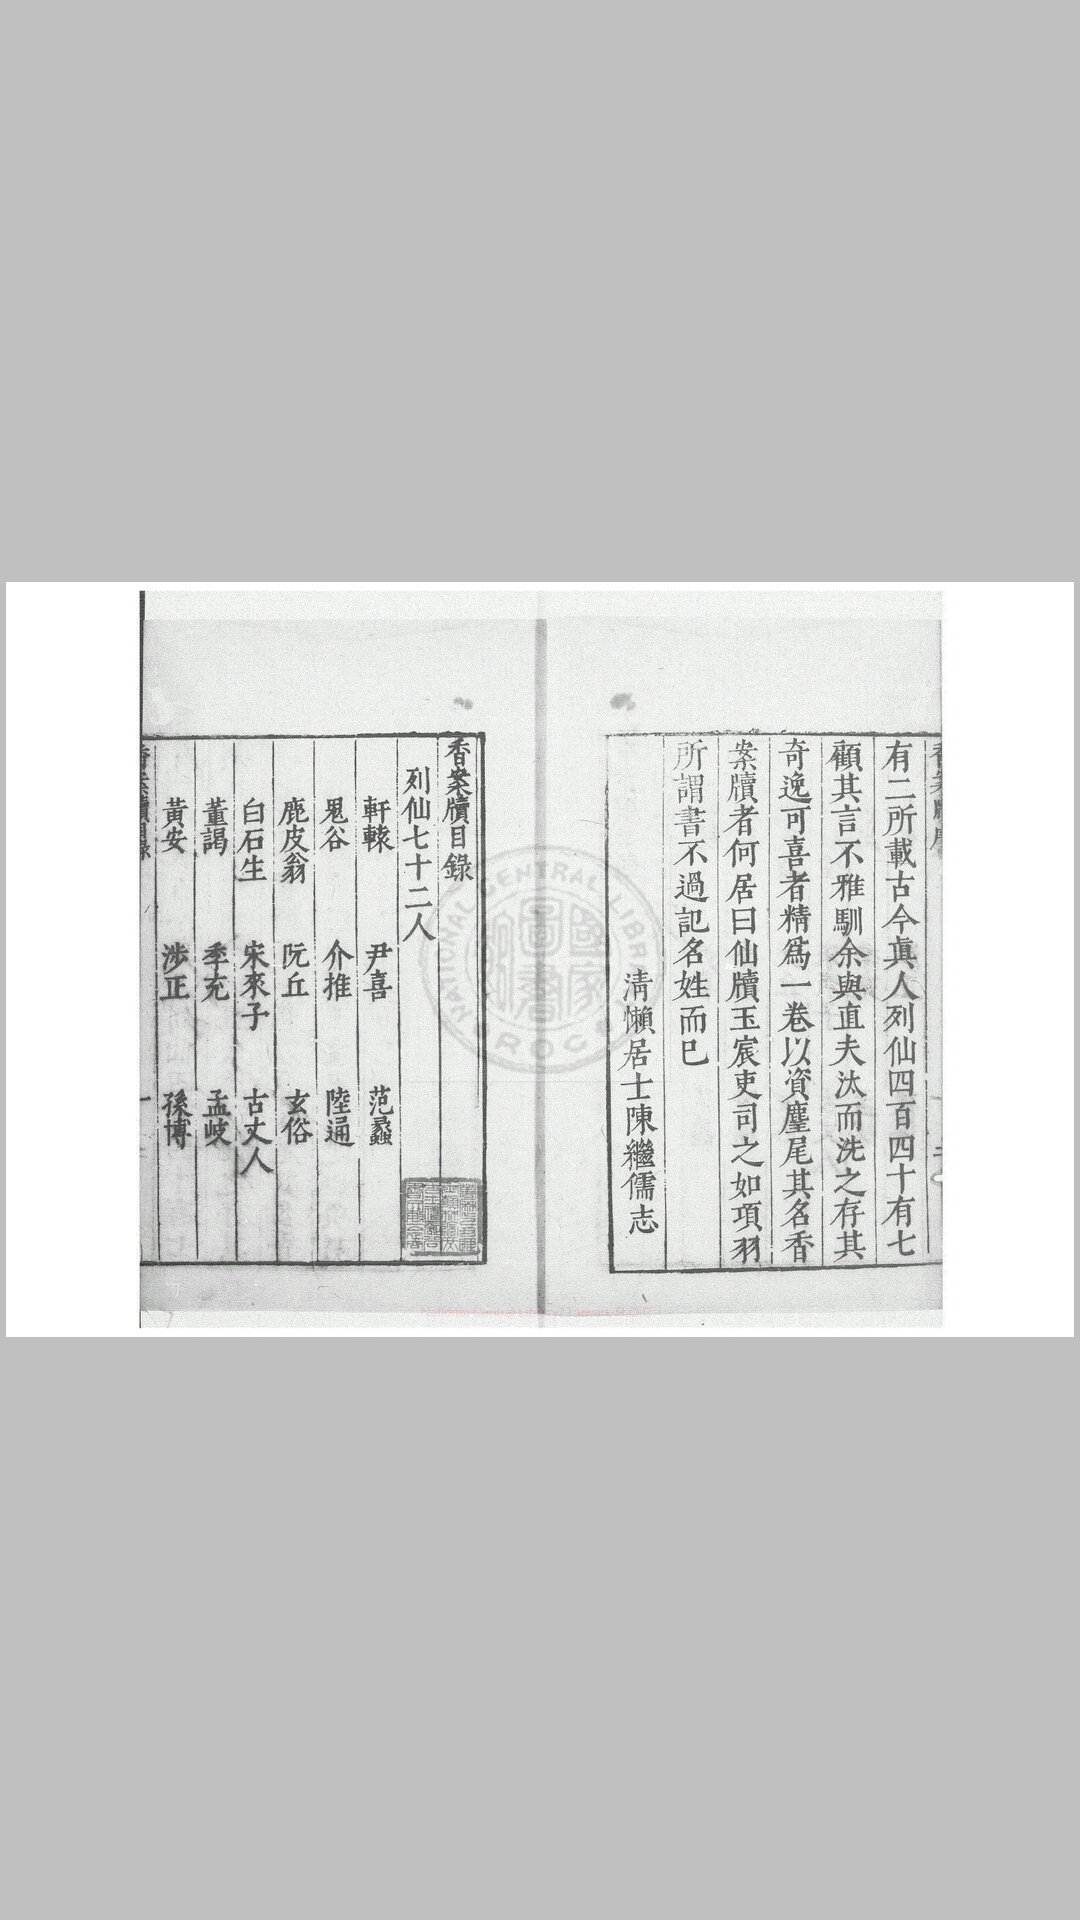 有二所載古今眞人列仙四百四十有七
顧其言不雅馴余與直夫汰而洗之存其
奇逸可喜者精爲一卷以資麈尾其名香
案牘者何居曰仙牘玉宸吏司之如項羽
所謂書不過記名姓而已
清懶居士陳繼儒志
香案牘目錄
列仙七十二人
軒轅 尹喜 范蠡
鬼谷 介推 陸通
鹿皮翁 阮丘 玄俗
白石生 宋來子 古丈人
董謁 季充 孟岐
黃安 涉正 孫博
香案牘目錄 一
NATIONAL CENTRAL LIBRARY